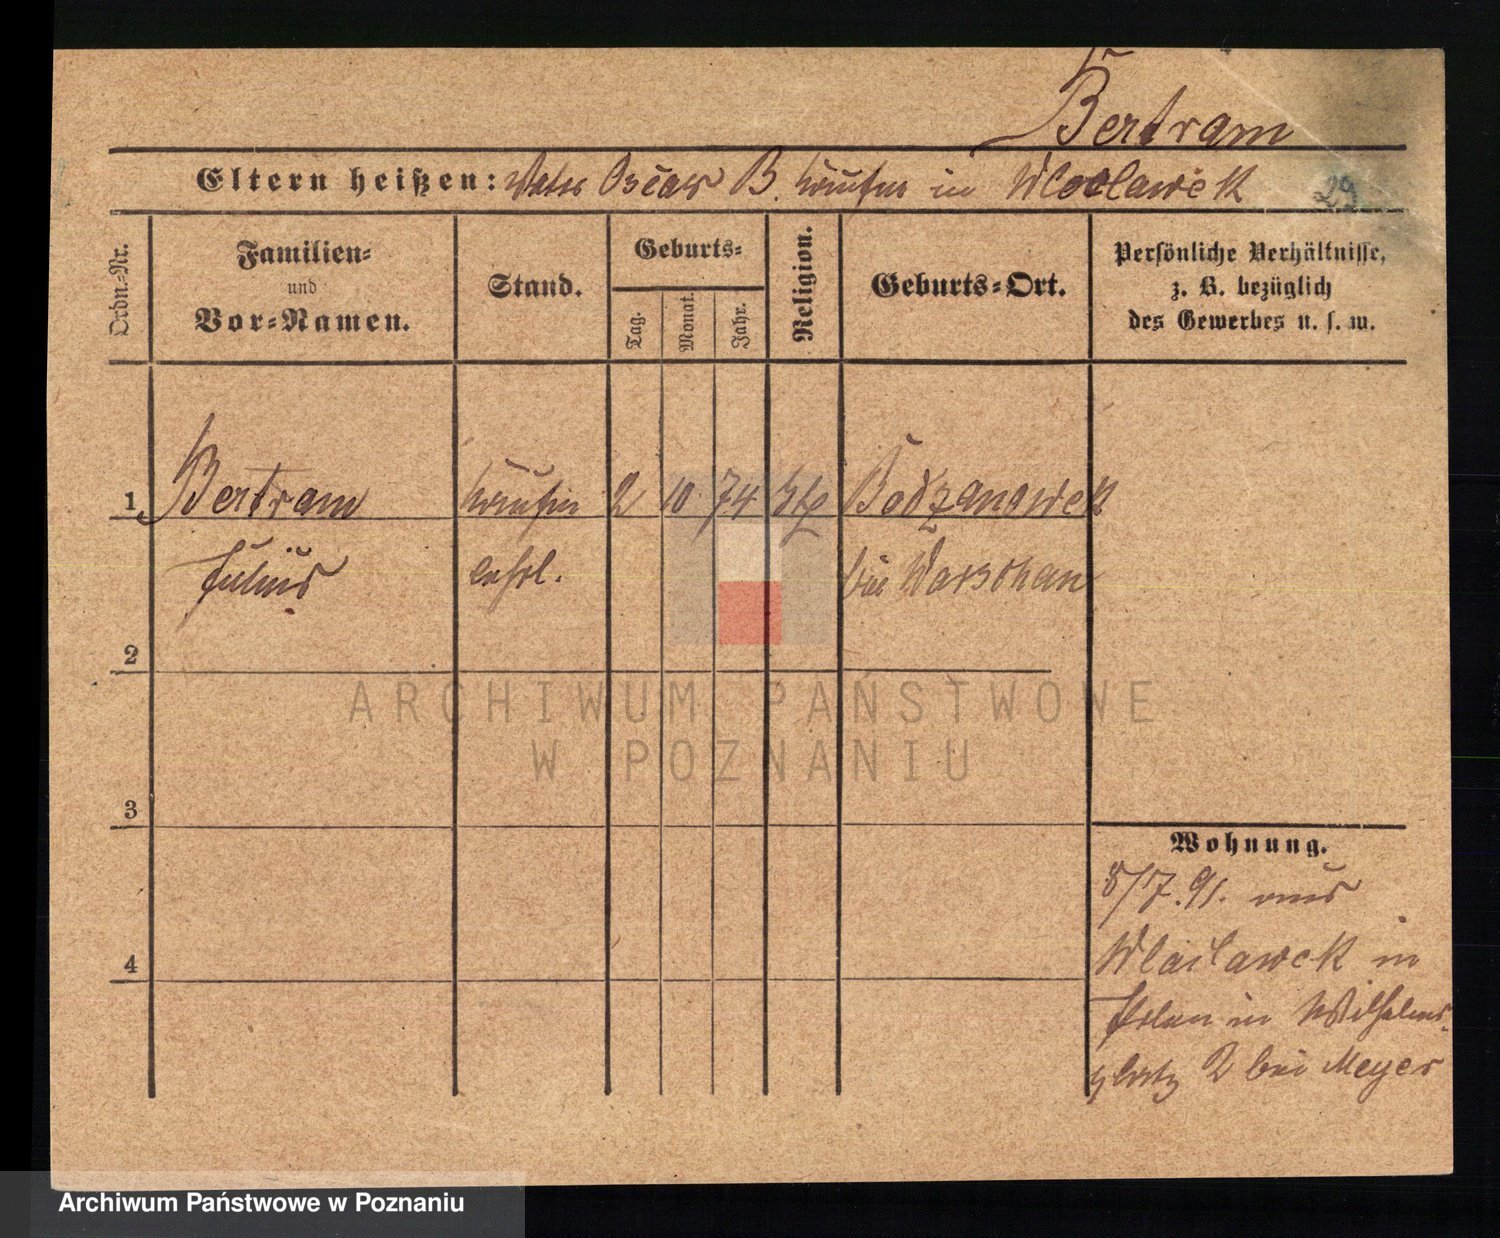 Bertram
Eltern heißen: Vater Oscar B. Kaufm in Wloclawek
29
Ordn.-Nr.
Familien-
und
Vor-Namen.
Stand.
Geburts-
Tag.
Monat.
Jahr.
Religion.
Geburts-Ort.
Persönliche Verhältnisse,
z. B. bezüglich
des Gewerbes u. s. w.
1 Bertram Kaufm 2 10 74 Bodzanowek
Julius lehrl. bei Warschau
2
3
4
Wohnung.
8/7.91. aus
Wlaclawek in
Polen in Wilhelms-
platz 2 bei Meyer
ARCHIWUM PAŃSTWOWE
W POZNANIU
Archiwum Państwowe w Poznaniu